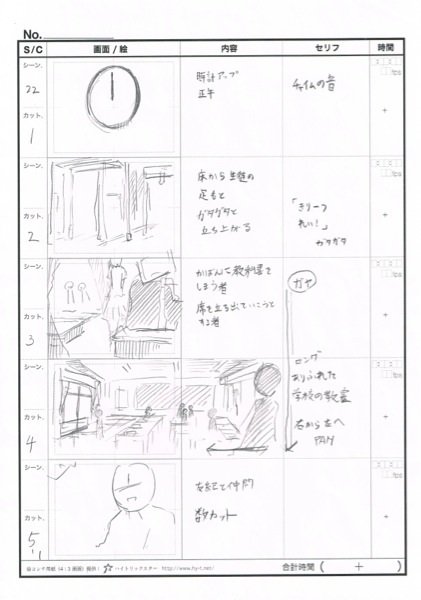 No.
S/C 画面/絵 内容 セリフ 時間
シーン.
22
カット.
1
時計アップ
正午
チャイムの音
fps
+
シーン.
カット.
2
床から生徒の
足もと
ガタガタと
立ち上がる
「きりーつ
れい!」
ガタガタ
fps
+
シーン.
カット.
3
かばんに教科書を
しまう者
席を立ち出ていこうと
する者
ガヤ
fps
+
シーン.
カット.
4
ロング
ありふれた
学校の教室
右から左へ
PAN
fps
+
シーン.
カット.
5
と仲間
数カット
fps
+
絵コンテ用紙(4:3画面)提供: ハイトリックスター http://www.hy-t.net/
合計時間 ( + )